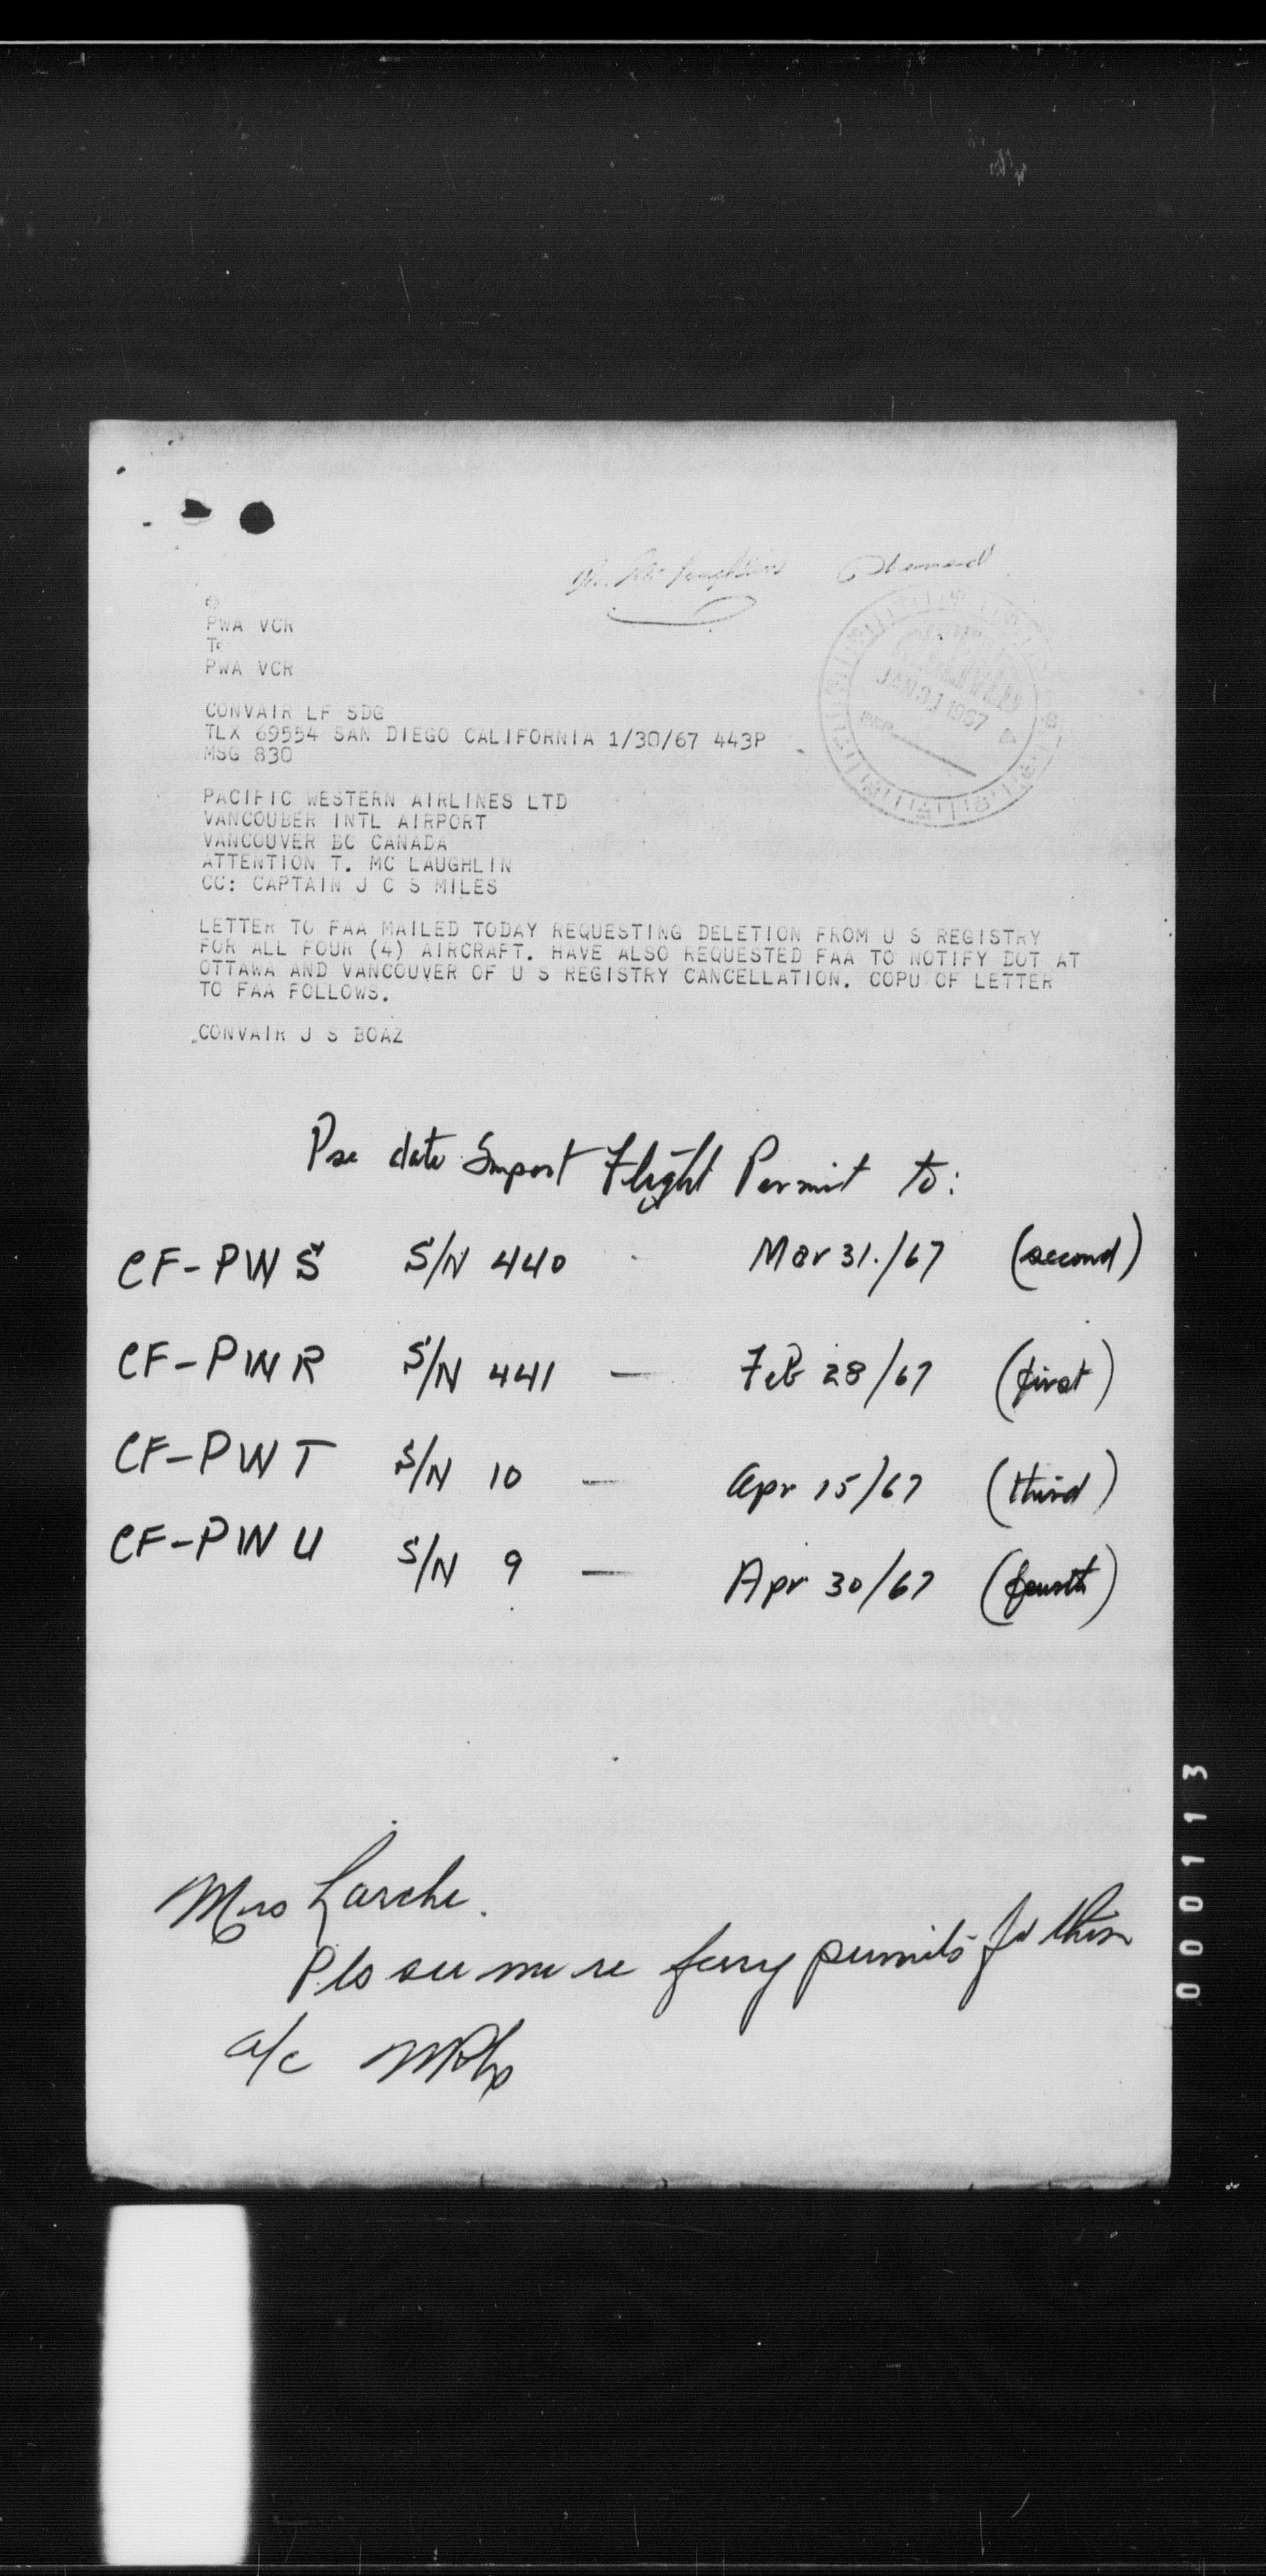 Mr. McLaughlin
PWA VCR
To
PWA VCR
CONVAIR LF SDG
TLX 69554 SAN DIEGO CALIFORNIA 1/30/67 443P
MSG 830
JAN 31 1967
PER
PACIFIC WESTERN AIRLINES LTD
VANCOUBER INTL AIRPORT
VANCOUVER BC CANADA
ATTENTION T. MC LAUGHLIN
CC: CAPTAIN J C S MILES
LETTER TO FAA MAILED TODAY REQUESTING DELETION FROM U S REGISTRY
FOR ALL FOUR (4) AIRCRAFT. HAVE ALSO REQUESTED FAA TO NOTIFY DOT AT
OTTAWA AND VANCOUVER OF U S REGISTRY CANCELLATION. COPU OF LETTER
TO FAA FOLLOWS.
CONVAIR J S BOAZ
Pse date Import Flight Permit to:
CF-PWS S/N 440 - Mar 31./67 (second)
CF-PWR S/N 441 — Feb 28/67 (first)
CF-PWT S/N 10 — Apr 15/67 (third)
CF-PWU S/N 9 — Apr 30/67 (fourth)
Mrs Larche.
Pls see me re ferry permits for these
a/c
000113